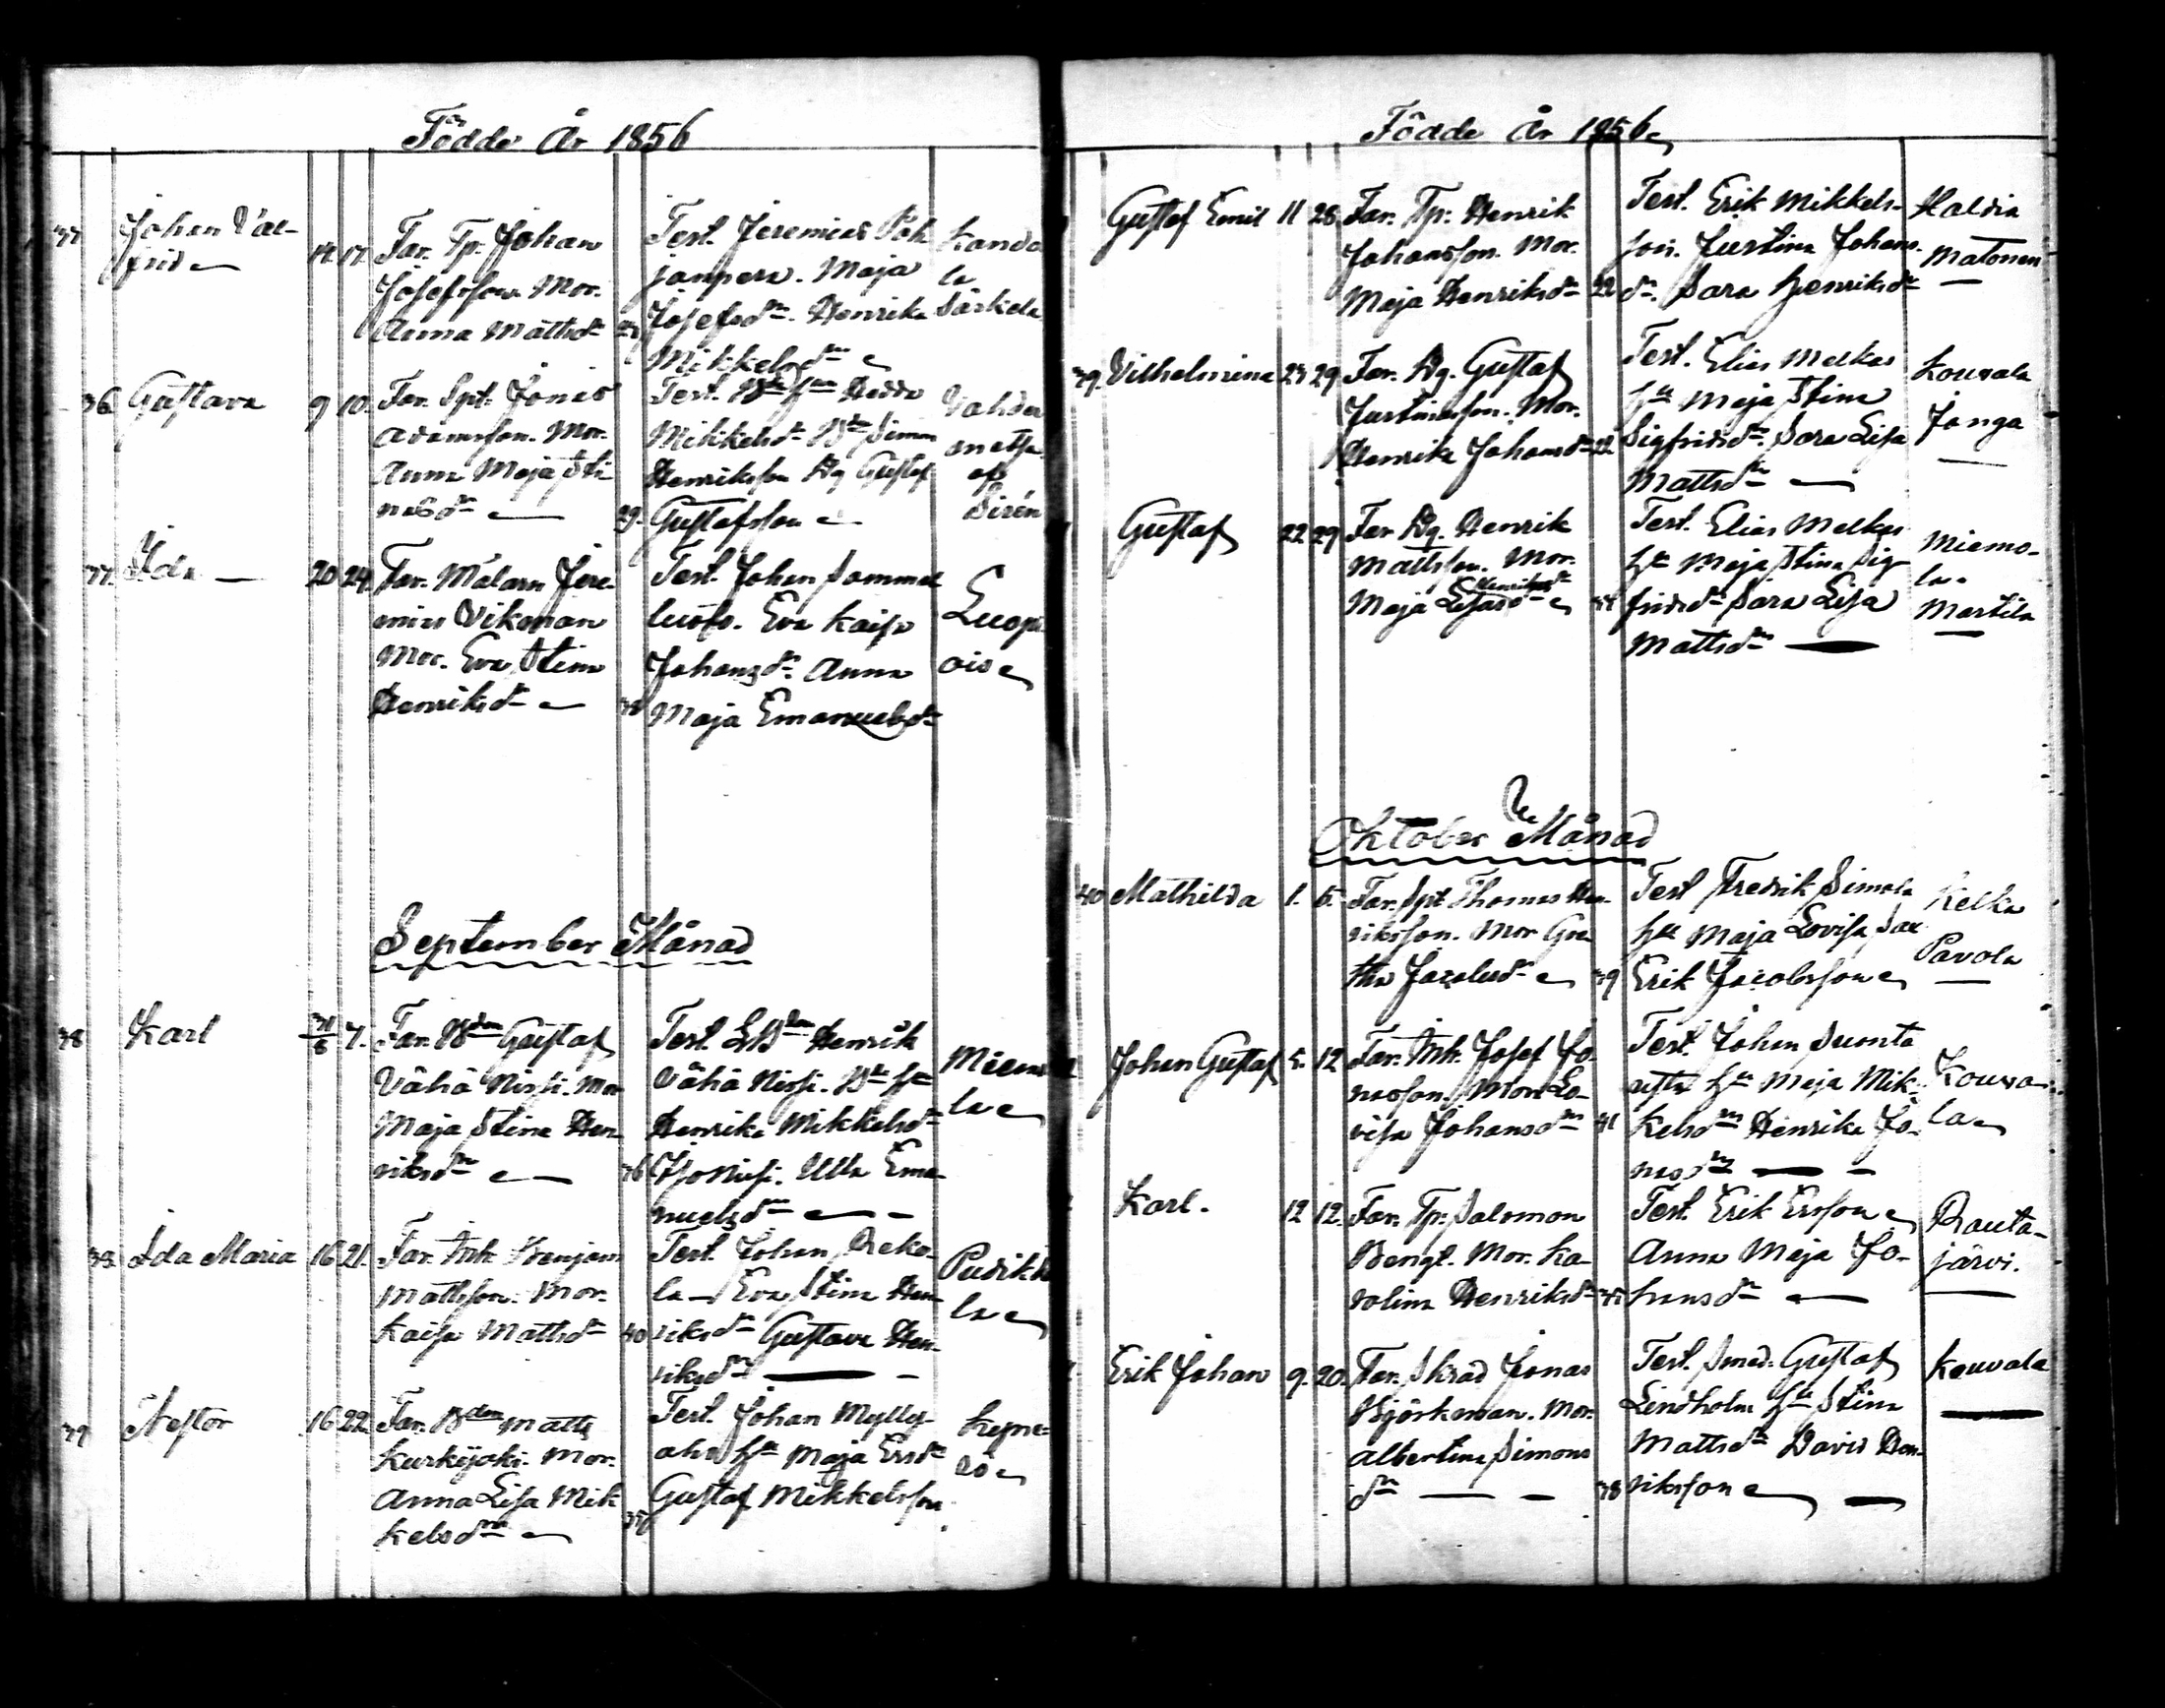 Födde År 1856
37 Johan Val-
frid
14. 17. Far. Tp. Johan
Josefsson Mor.
Anna Mattsdr
Test. Jeremias Poh
janpera. Maja
Josefsdr. Henrika
Mikkelsdr
Kando
la
Särkela
36 Gustava 9 10. Far. Spt. Jonas
Adamsson. Mor.
Anna Maja Sti
nasdr
29. Test. Hedda
Mikkelsdr Simon
Henriksson Dg Gustaf
Gustafsson
Vahder
metsa
af
Sirén
37. Ida 20 24 Far. Målarn Jere-
mias Vikman
Mor. Eva Stina
Henriksdr
Test. Johan Sammal
luoto. Eva Kaisa
Johansdr Anna
Maja Emanuelsdr
Luopi
ois
September Månad
38 Karl 31/8 7. Far. Bdn Gustaf
Vähä Nissi. Mor
Maja Stina Hen
riksdr
36 Test. Bdn Henrik
Vähä Nissi. hu
Henrika Mikkelsdr
Iso Nissi. Ulla Ema
nuelsdr
Miemo
la
38. Ida Maria 16 21. Far. Inh. Benjam
Mattsson. Mor.
Kaisa Mattsdr
40 Test. Johan Reko-
la Eva Stina Hen
riksdr Gustava Hen-
riksdr
Pudikka
la
39 Nestor 16 22 Far. Bdn Matts
Kurkijoki. Mor.
Anna Lisa Mik
kelsdr
Test. Johan Mylly-
aho hu Maja Ersdr
Gustaf Mikkelsson
Födde År 1856
Gustaf Emil 11 28. Far. Tp. Henrik
Johansson. Mor.
Maja Henriksdr
22 Test. Erik Mikkels-
son. Justina Johans-
dr. Sara Henriksdr
Haldia
Matonen
39. Vilhelmina 27 29. Far. Dg. Gustaf
Justinusson. Mor.
Henrika Johansdr
22 Test. Elias Melkas
hu Maja Stina
Sigfridsdr. Sara Lisa
Mattsdr
Kouvala
Janga
Gustaf 22 29 Far Dg. Henrik
Mattsson. Mor.
Maja Henriksdr
Test. Elias Melkas
hu Maja Stina Sig
fridsdr Sara Lisa
Mattsdr
Miemo-
la.
Martila
Oktober Månad
40 Mathilda 1. 5. Far. Spt Thomas Hen-
riksson. Mor Gre
tha Jacobsdr
39 Test Fredrik Simola
hu Maja Lovisa
Erik Jacobsson
Kelka
Pavola
Johan Gustaf 5. 12 Far. Inh. Josef Jo
nasson. Mor Lo-
visa Johansdr
41 Test. Johan Suonta
austa hu Maja Mik-
kelsdr Henrika Jo-
nasdr
Kouva-
la
Karl. 12 12. Far. Tp. Salomon
Bengt. Mor. Ka-
rolina Henriksdr
Test. Erik Ersson
Anna Maja Jo-
hansdr
Rauta-
järvi.
Erik Johan 9. 20. Far. Skräd Jonas
Björkman. Mor.
Albertina Simons
dr
38 Test. Smed. Gustaf
Lindholm hu Stina
Mattsdr David Hen-
riksson
Kouvala